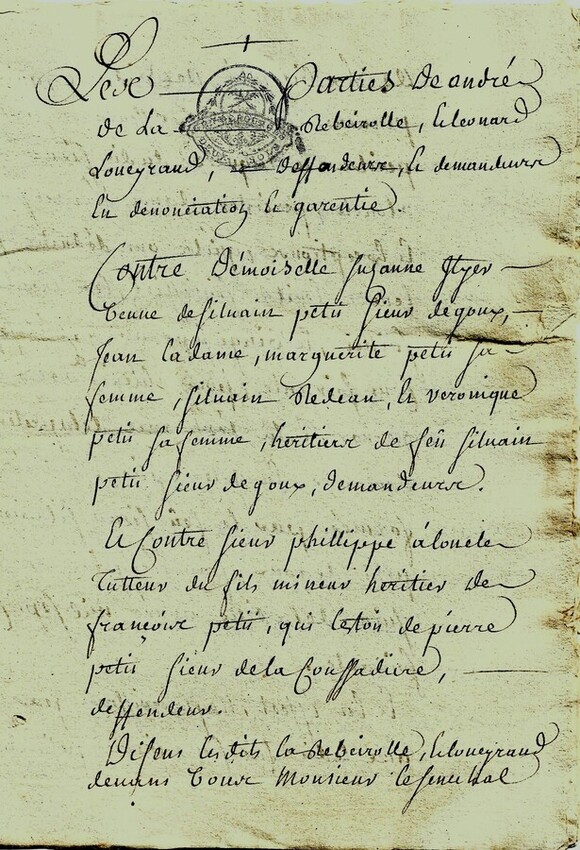 Les Parties de andré
de La Rebeirolle, et Leonard
Loueyraud, deffandeurs, et demandeurs
En denonciation et garentie.
Contre Démoiselle suzanne
veuve de siluain petit sieur degoux,
Jean ladame, marguerite petit sa
femme, siluain Redeau, et veronique
petit sa femme, heritiers de feû siluain
petit sieur degoux, demandeurs.
Et Contre sieur phillippe
tutteur du fils mineur heritier de
françois petit, qui lestoit de pierre
petit sieur de la Coussadiere,
deffendeur.
Disent lesdits la Rebeirolle, et Loueyraud
deuant vous Monsieur le senechal